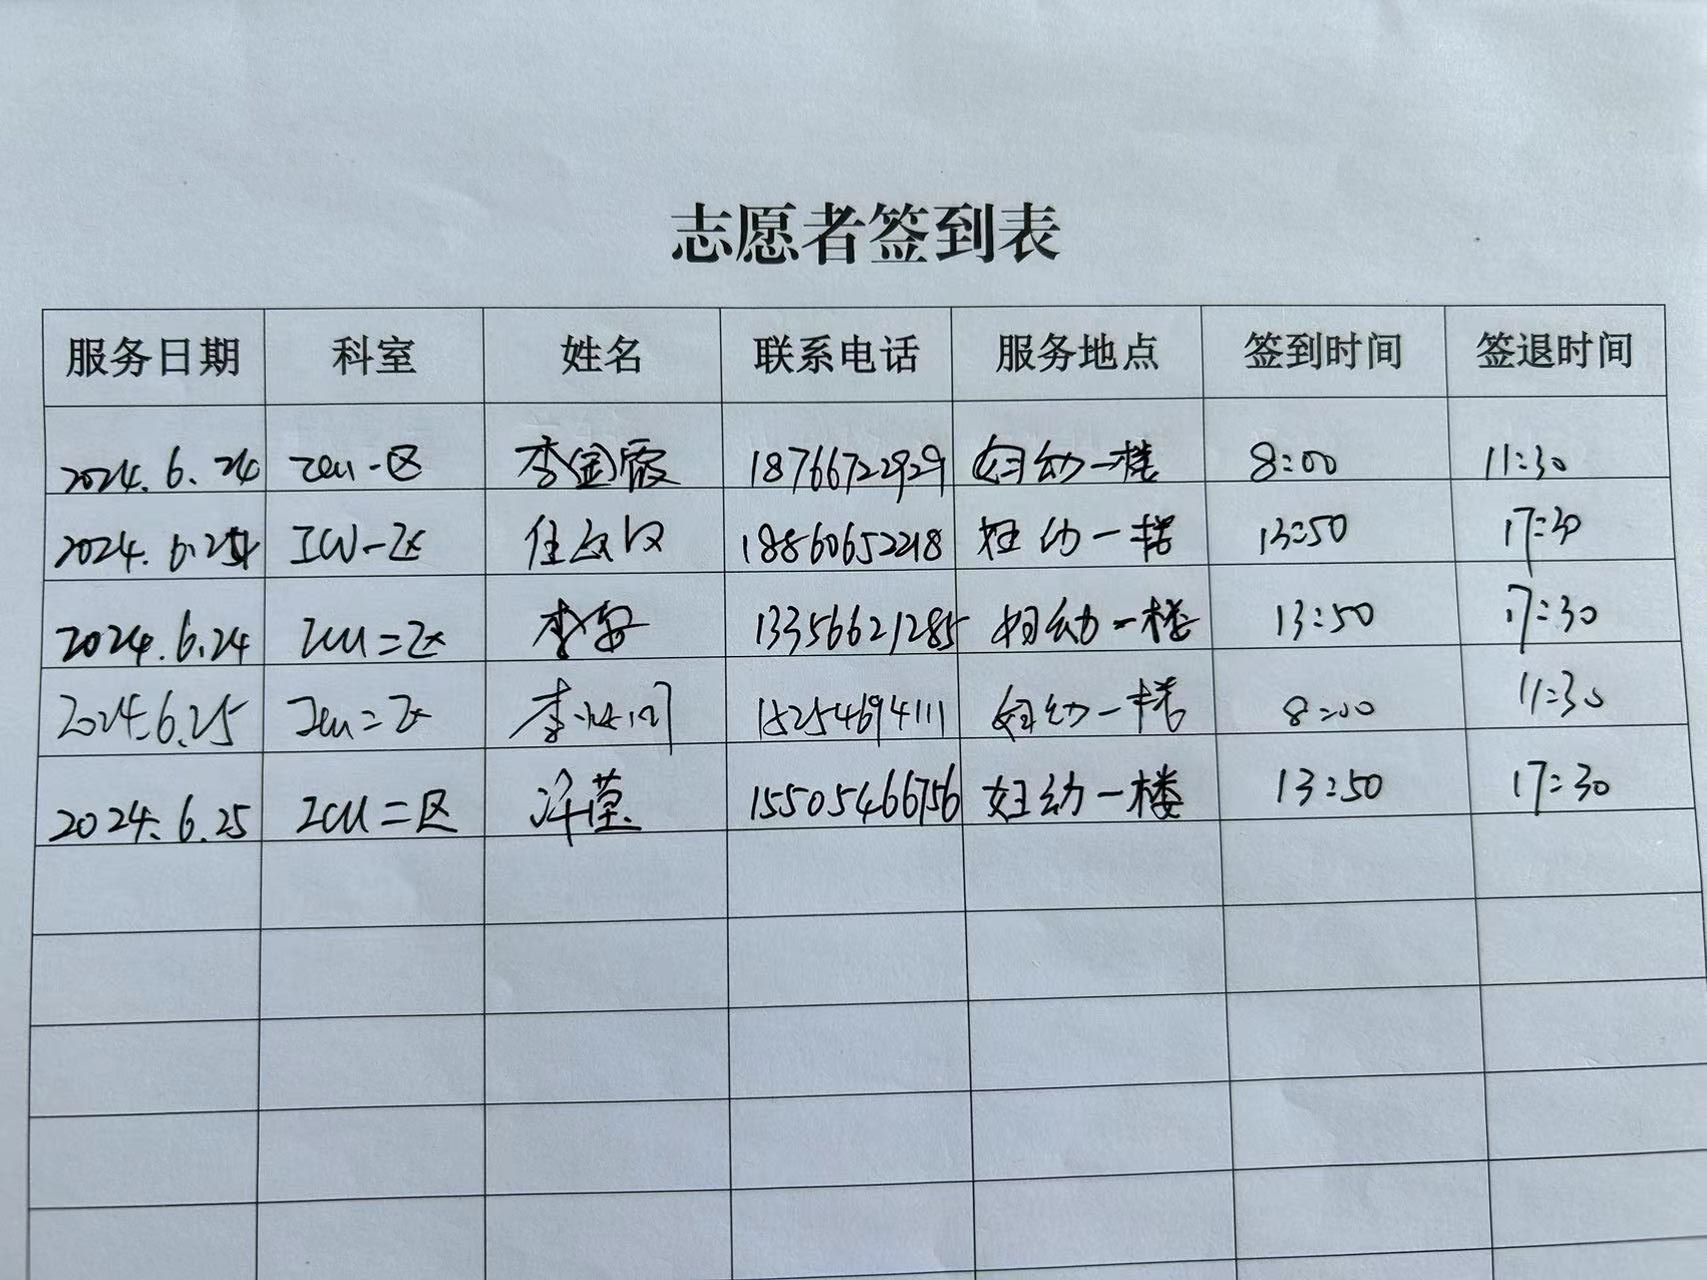 志愿者签到表
服务日期 科室 姓名 联系电话 服务地点 签到时间 签退时间
2024.6.24 ICU一区 李金霞 18766722929 妇幼一楼 8:00 11:30
2024.6.24 ICU一区 18860652218 妇幼一楼 13:50 17:30
2024.6.24 ICU二区 李 13356621285 妇幼一楼 13:50 17:30
2024.6.25 ICU二区 李 15254694111 妇幼一楼 8:00 11:30
2024.6.25 ICU二区 15505466756 妇幼一楼 13:50 17:30